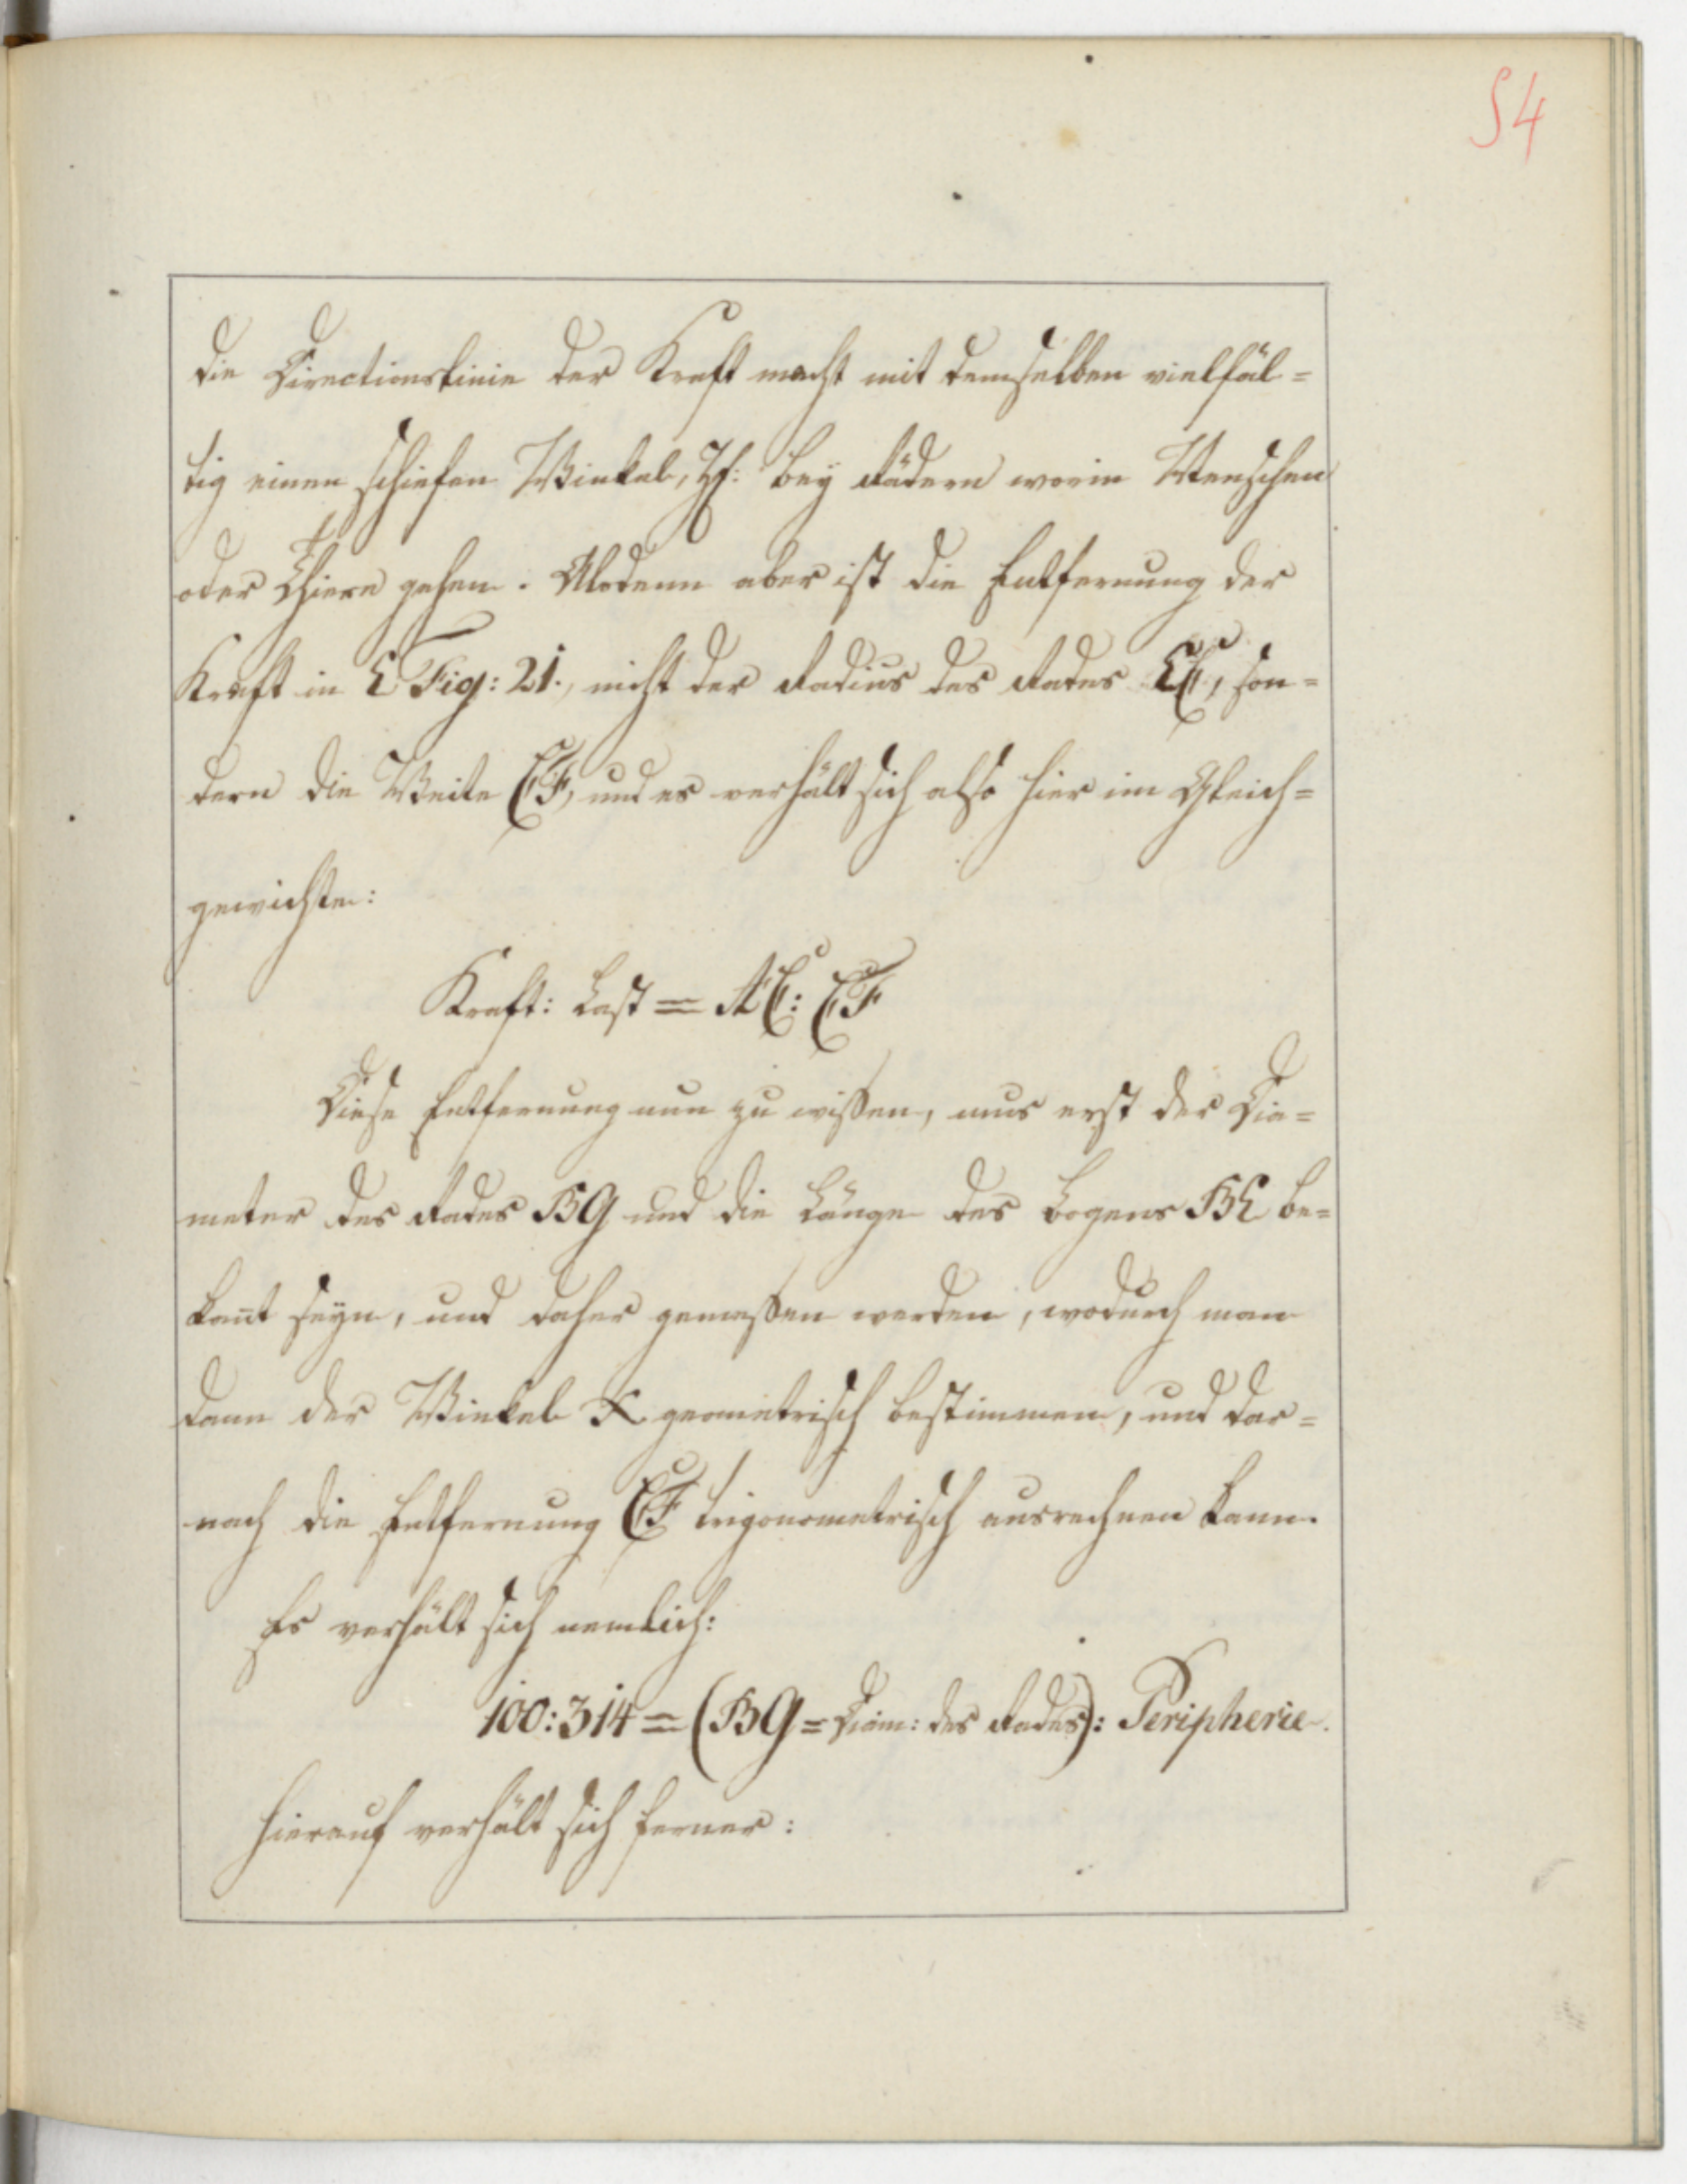 54
die Directionslinie der Kraft macht mit demselben vielfäl=
tig einen schiefen Winkel, Zf: bey Rädern worin Menschen
oder Thiere gehen. Alsdenn aber ist die Entfernung der
Kraft in E Fig: 21., nicht der Radius des Rades EC, son=
dern die Weite CF, und es verhält sich also hier im Gleich=
gewichte:
Kraft: Last = AC: CF
Diese Entfernung nun zu wißen, mus erst der Dia=
meter des Rades BG und die Länge des Bogens BE be=
kan̄t seyn, und daher gemeßen werden, wodurch man
dann der Winkel X geometrisch bestimmen, und dar=
nach die Entfernung CF trigonometrisch ausrechnen kann.
Es verhält sich nemlich:
100:314 = (BG = Diam: des Rades): Peripherie.
Hierauf verhält sich ferner: